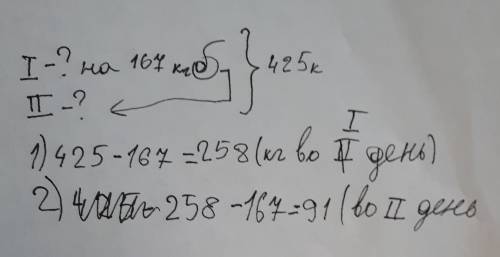 I - ? на 167 кг б. } 425к
II - ?
1) 425 - 167 = 258 (кг во I день)
2) 258 - 167 = 91 (во II день